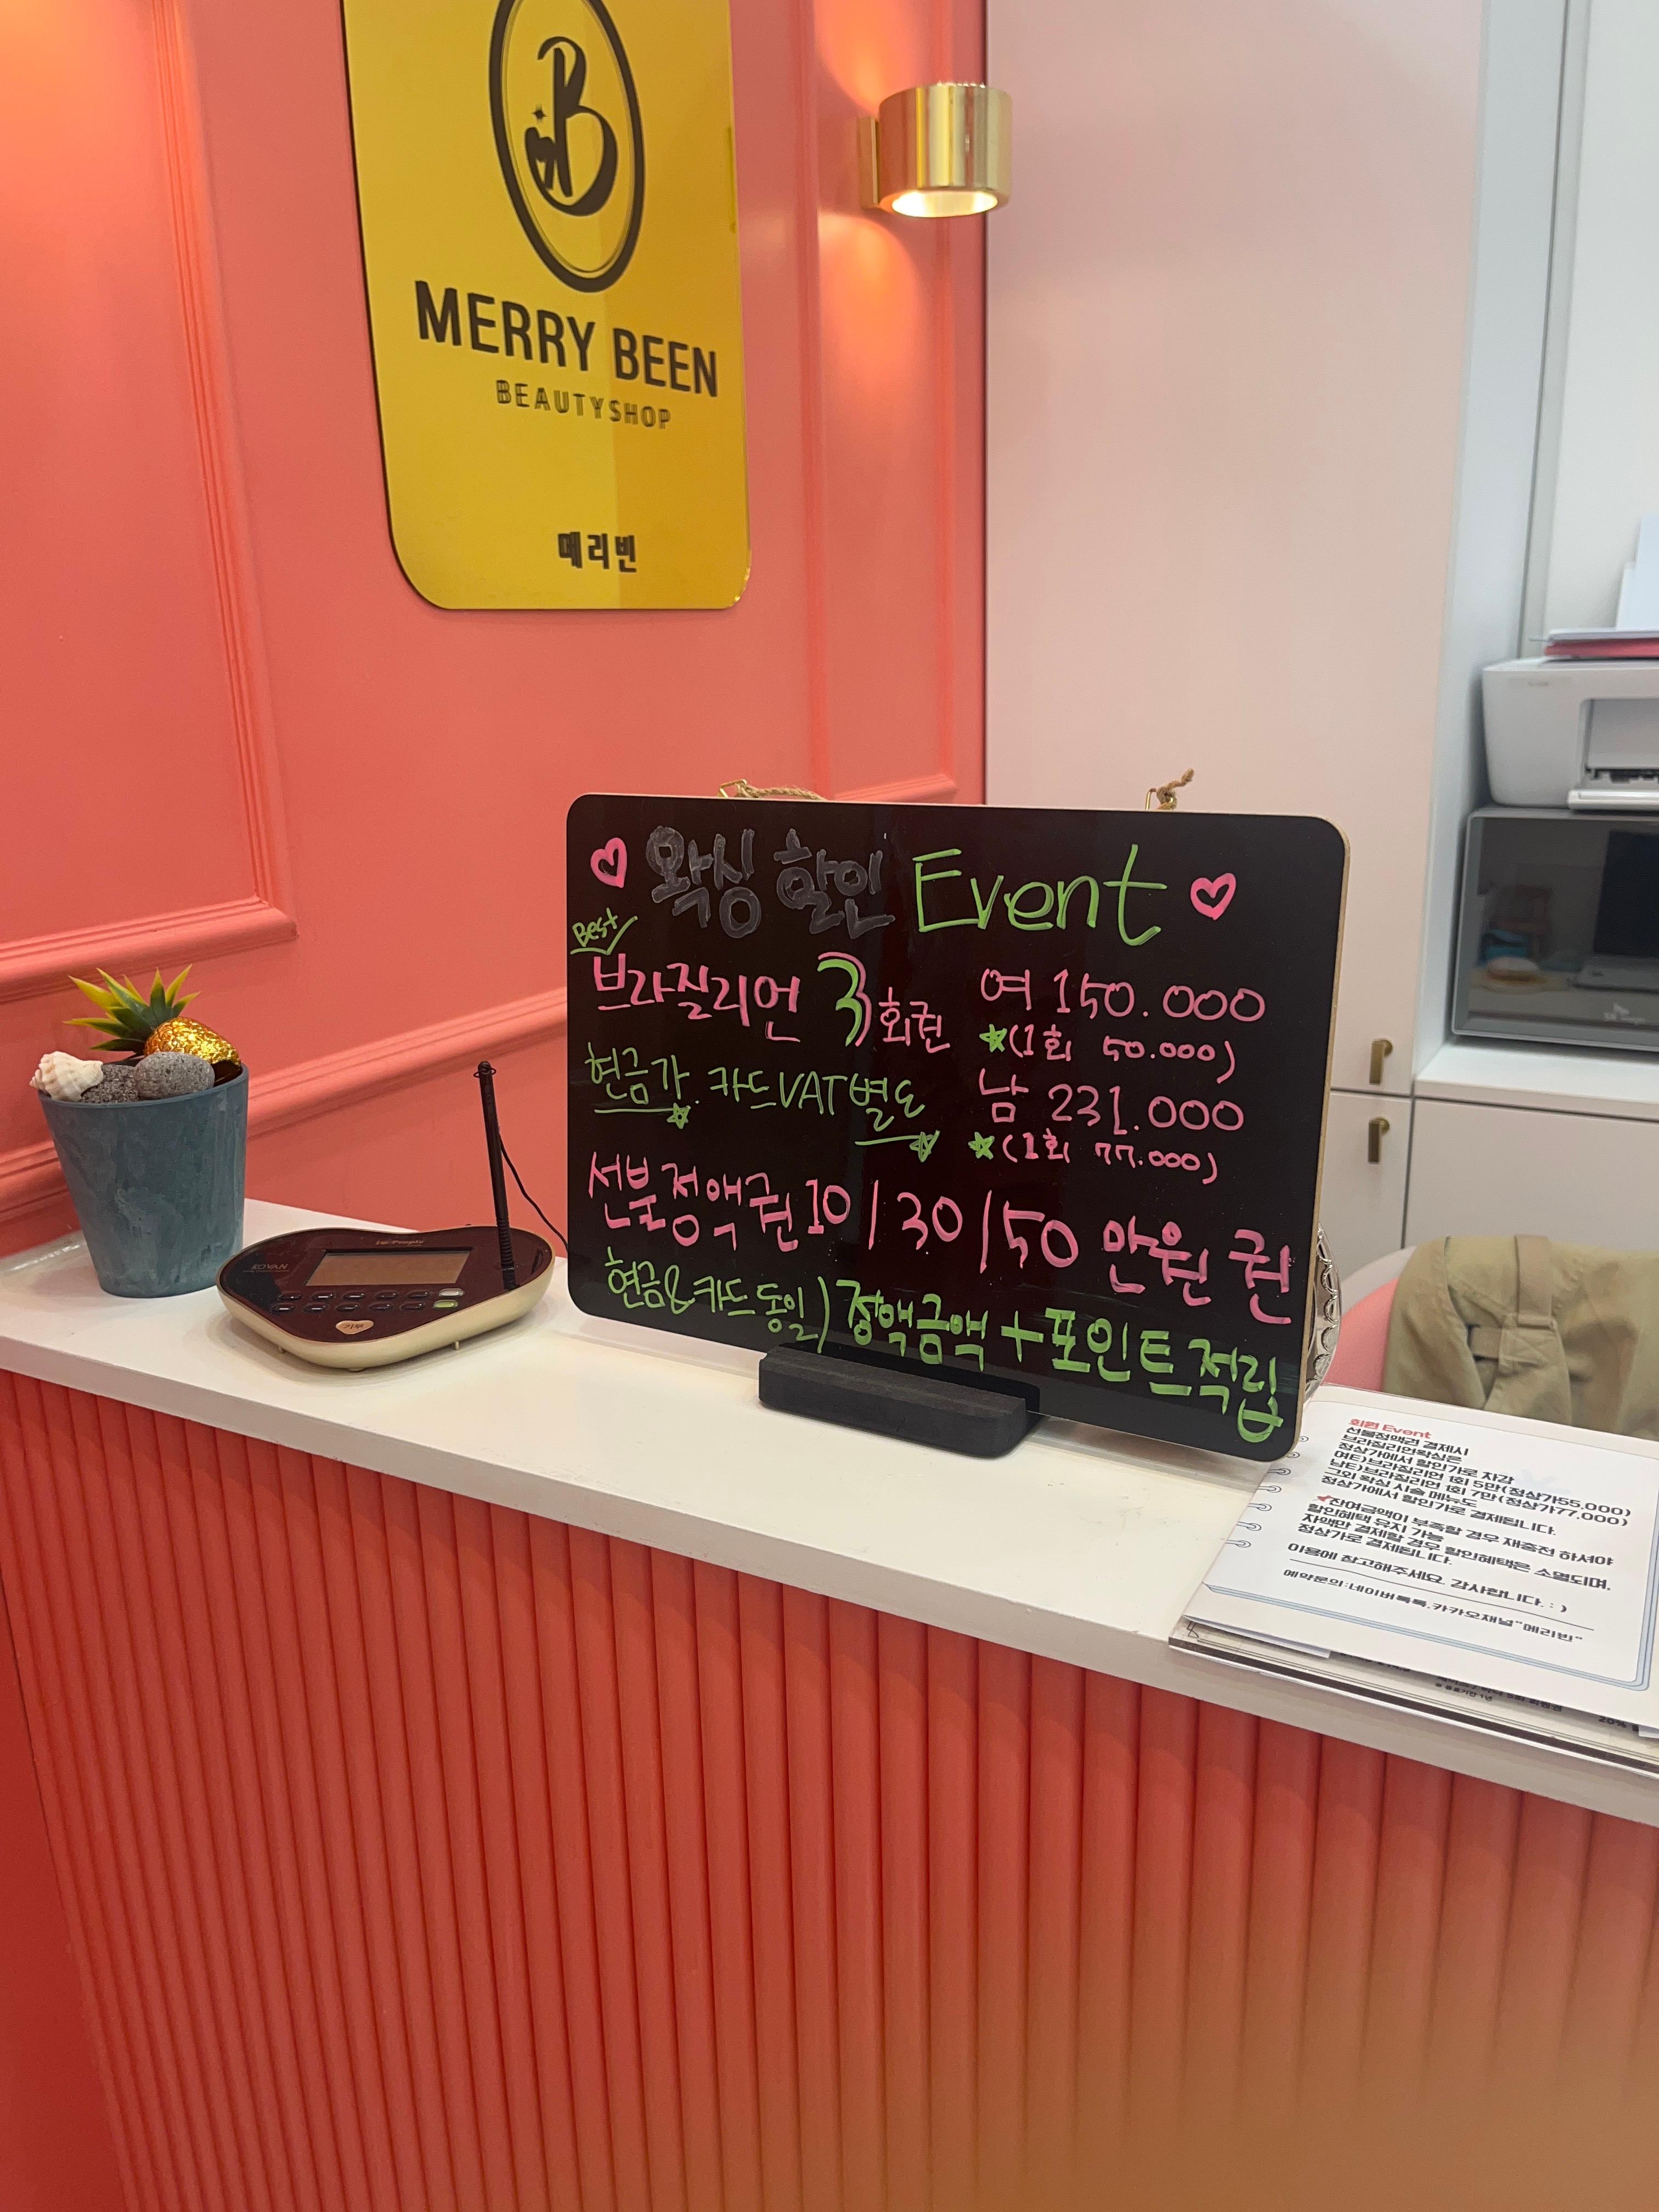 B
MERRY BEEN
BEAUTYSHOP
메리빈
왁싱 할인 Event
Best
브라질리언 3회권
여 150.000
(1회 50.000)
현금가. 카드VAT별도
남 231.000
(1회 77.000)
선불정액권 10/30/50 만원 권
현금&카드동일) 정액금액+포인트적립
KOVAN
회원 Event
선불정액권 결제시
브라질리언왁싱은
정상가에서 할인가로 차감
여E)브라질리언 1회 5만(정상가55,000)
남E)브라질리언 1회 7만(정상가77,000)
그외 왁싱 시술 메뉴도
정상가에서 할인가로 결제됩니다.
잔여금액이 부족할 경우 재충전 하셔야
할인혜택 유지 가능
차액만 결제할 경우 할인혜택은 소멸되며,
정상가로 결제됩니다.
이용에 참고해주세요. 감사합니다. : )
예약문의:네이버톡톡,카카오채널"메리빈"
20%